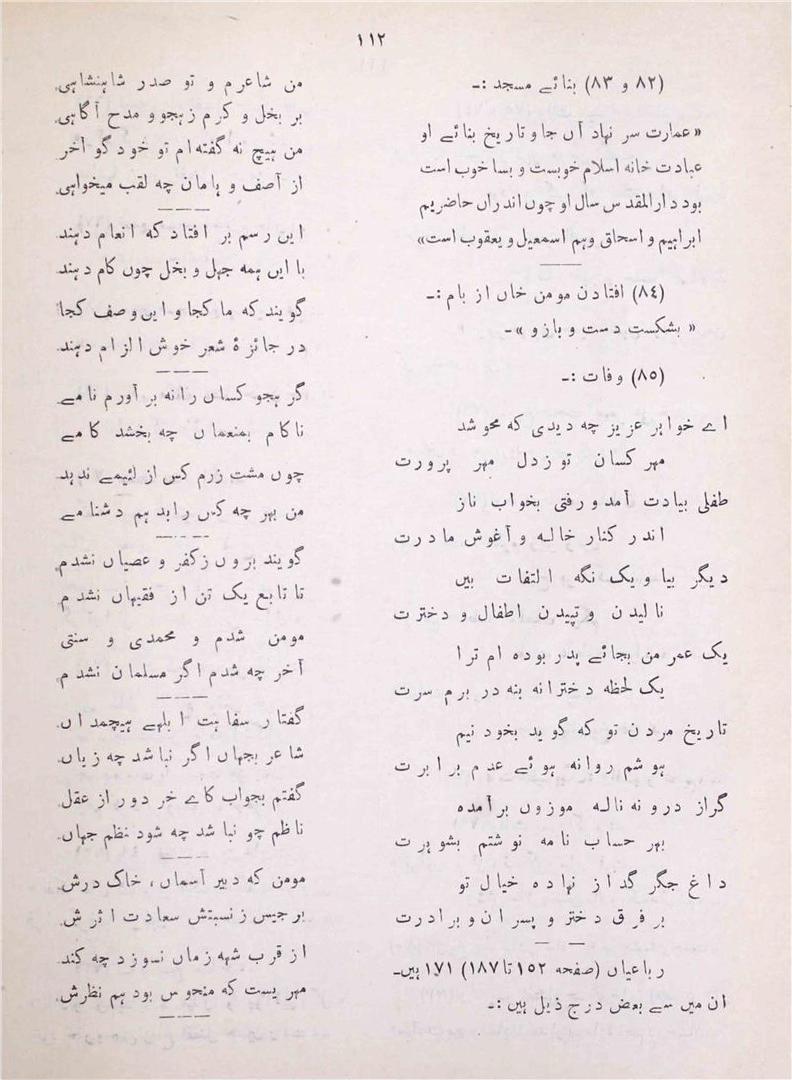 ۱۱۲
(۸۲ و ۸۳) بنائے مسجد :۔
«عمارت سر نہاد آں جا و تاریخ بنائے او
عبادت خانہ اسلام خوبست و بسا خوب است
بود دارالمقدس سال او چوں اندراں حاضریم
ابراہیم و اسحاق و ہم اسمعیل و یعقوب است»
(۸٤) افتادن مومن خاں از بام :۔
« بشکست دست و بازو »۔
(۸۵) وفات :۔
اے خواہر عزیز چہ دیدی کہ محو شد
مہر کسان تو ز دل مہر پرورت
طفلی بیادت آمد و رفتی بخواب ناز
اندر کنار خالہ و آغوش مادرت
دیگر بیا و یک نگہ التفات بیں
نالیدن و تپیدن اطفال و دخترت
یک عمر من بجائے پدر بودہ ام ترا
یک لحظہ دخترانہ بنہ در برم سرت
تاریخ مردن تو کہ گوید بخود نیم
ہوشم روانہ ہوئے عدم برابرت
گر از درونہ نالہ موزوں برآمدہ
بہر حساب نامہ نوشتم بشوہرت
داغ جگر گداز نہادہ خیال تو
بر فرق دختر و پسران و برادرت
رباعیاں (صفحہ ۱۵۲ تا ۱۸۷) ۱۷۱ ہیں۔
ان میں سے بعض درج ذیل ہیں :۔
من شاعرم و تو صدر شاہنشاہی
بر بخل و کرم زہجو و مدح آگاہی
من ہیچ نہ گفتہ ام تو خود گو آخر
از آصف و ہامان چہ لقب میخواہی
ایں رسم بر افتاد کہ انعام دہند
با ایں ہمہ جہل و بخل چوں کام دہند
گویند کہ ما کجا و ایں وصف کجا
در جائزۂ شعر خوش الزام دہند
گر ہجو کساں رانہ بر آورم نامے
ناکام بمنعماں چہ بخشد کامے
چوں مشت زرم کس از لئیمے ندہد
من بہر چہ کس را بدہم دشنامے
گویند بروں زکفر و عصیاں نشدم
تا تابع یک تن از فقیہاں نشدم
مومن شدم و محمدی و سنتی
آخر چہ شدم اگر مسلمان نشدم
گفتار سفاہت ابلہے ہیچمداں
شاعر بجہاں اگر نباشد چہ زیاں
گفتم بجواب کاے خر دور از عقل
ناظم چو نباشد چہ شود نظم جہاں
مومن کہ دبیر آسماں، خاک درش
برجیس ز نسبتش سعادت اثرش
از قرب شہہ زماں نسوزد چہ کند
مہریست کہ منحوس بود ہم نظرش